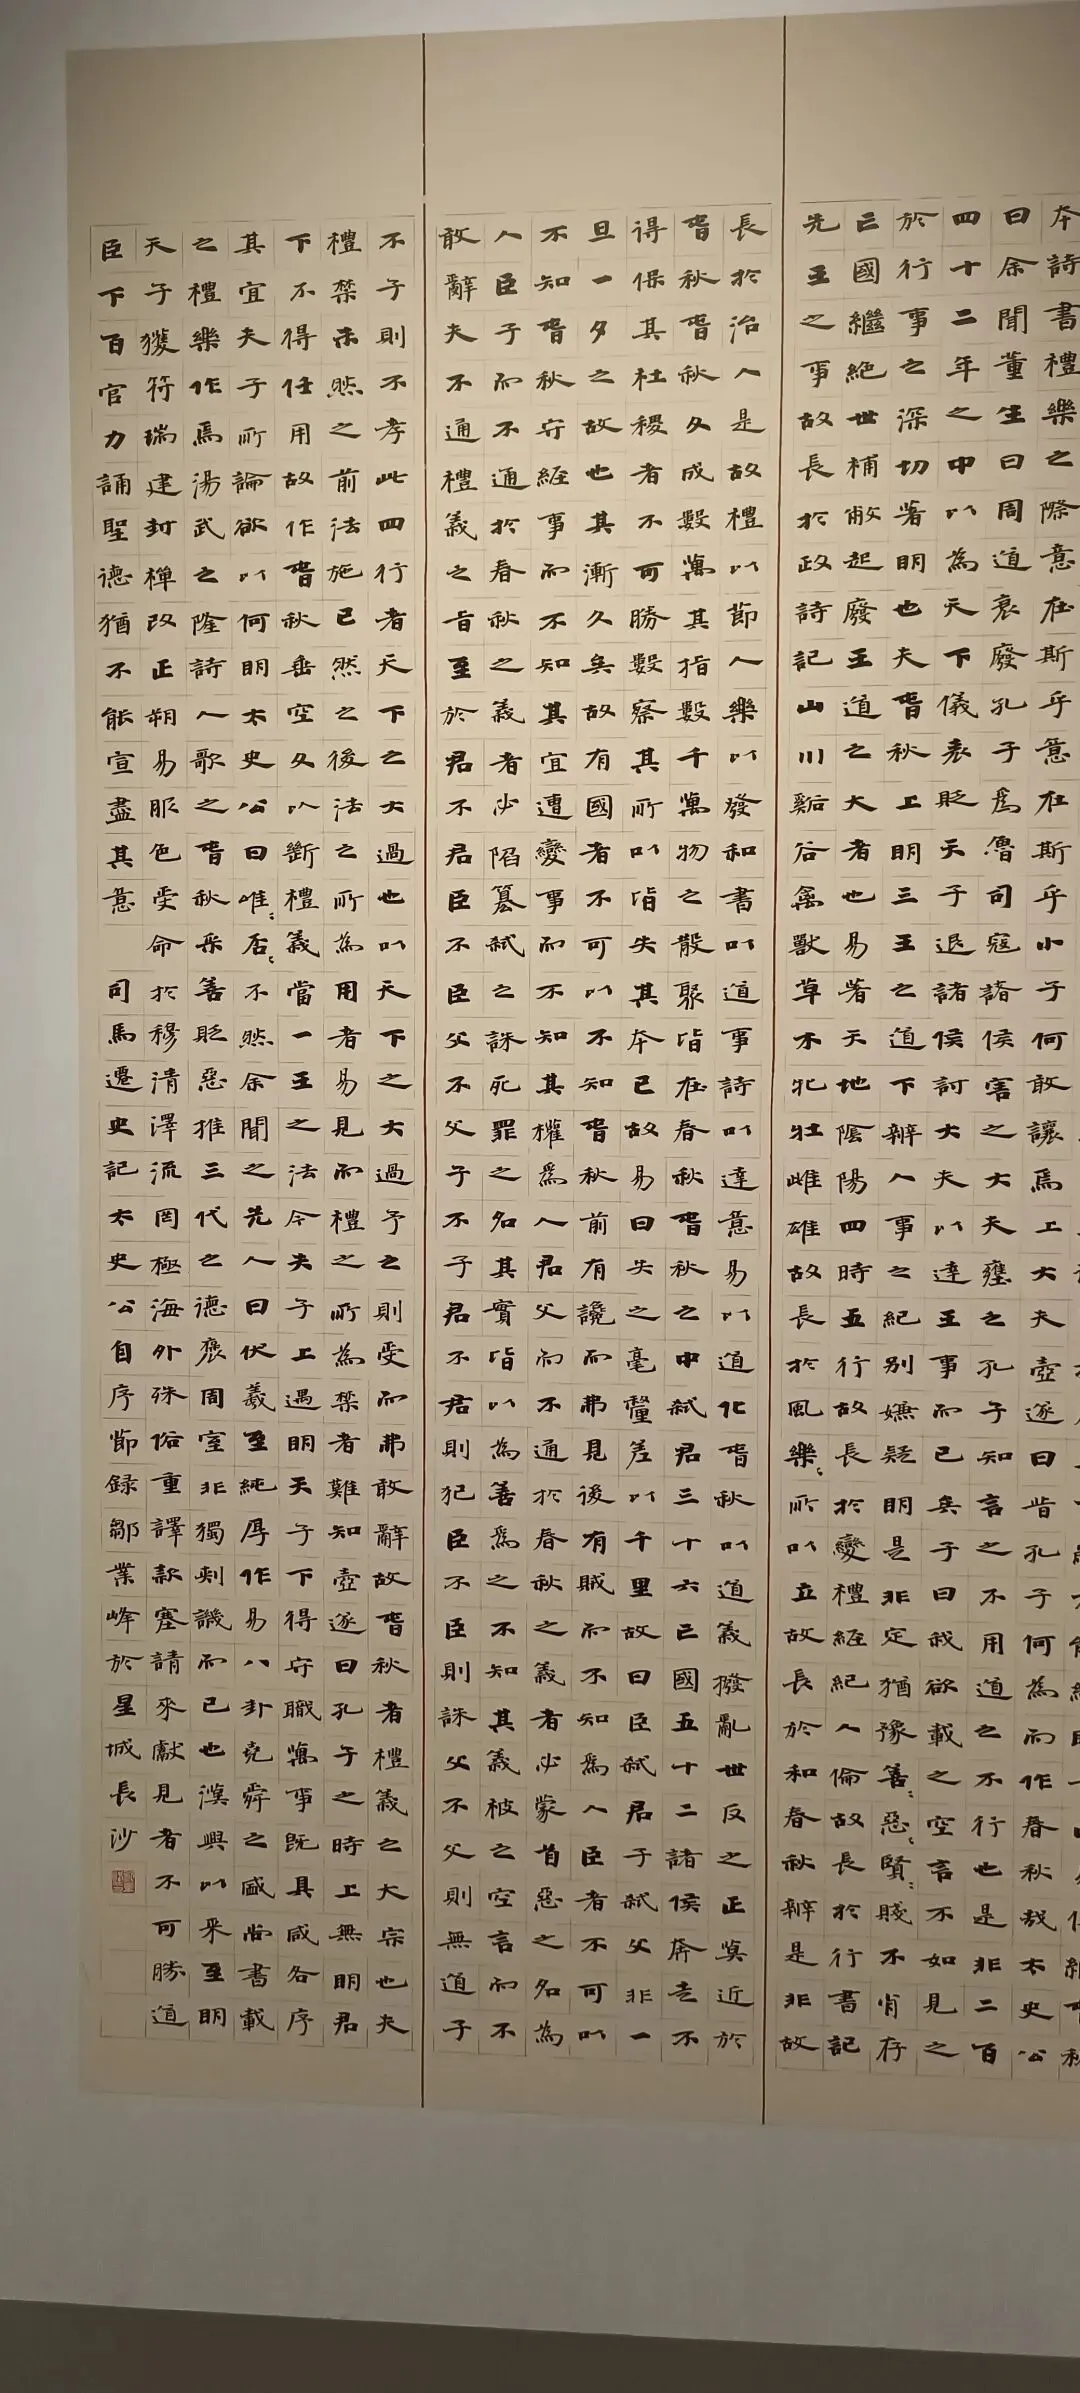 本詩書禮樂之際意在斯乎意在斯乎小子何敢讓焉上大夫壺遂曰昔孔子何為而作春秋哉太史公
曰余聞董生曰周道衰廢孔子爲魯司寇諸侯害之大夫壅之孔子知言之不用道之不行也是非二百
四十二年之中以為天下儀表貶天子退諸侯討大夫以達王事而已矣子曰我欲載之空言不如見之
於行事之深切著明也夫春秋上明三王之道下辨人事之紀別嫌疑明是非定猶豫善〻惡〻賢〻賤不肖存
亡國繼絕世補敝起廢王道之大者也易著天地陰陽四時五行故長於變禮經紀人倫故長於行書記
先王之事故長於政詩記山川谿谷禽獸草木牝牡雌雄故長於風樂〻所以立故長於和春秋辨是非故
長於治人是故禮以節人樂以發和書以道事詩以達意易以道化春秋以道義撥亂世反之正莫近於
春秋春秋文成數萬其指數千萬物之散聚皆在春秋春秋之中弒君三十六亡國五十二諸侯奔走不
得保其社稷者不可勝數察其所以皆失其本已故易曰失之毫釐差以千里故曰臣弒君子弒父非一
旦一夕之故也其漸久矣故有國者不可以不知春秋前有讒而弗見後有賊而不知爲人臣者不可以
不知春秋守經事而不知其宜遭變事而不知其權爲人君父而不通於春秋之義者必蒙首惡之名為
人臣子而不通於春秋之義者必陷篡弒之誅死罪之名其實皆以為善爲之不知其義被之空言而不
敢辭夫不通禮義之旨至於君不君臣不臣父不父子不子君不君則犯臣不臣則誅父不父則無道子
不子則不孝此四行者天下之大過也以天下之大過予之則受而弗敢辭故春秋者禮義之大宗也夫
禮禁未然之前法施已然之後法之所為用者易見而禮之所為禁者難知壺遂曰孔子之時上無明君
下不得任用故作春秋垂空文以斷禮義當一王之法今夫子上遇明天子下得守職萬事既具咸各序
其宜夫子所論欲以何明太史公曰唯〻否〻不然余聞之先人曰伏羲至純厚作易八卦堯舜之盛尚書載
之禮樂作焉湯武之隆詩人歌之春秋采善貶惡推三代之德褒周室非獨刺譏而已也漢興以來至明
天子獲符瑞建封禪改正朔易服色受命於穆清澤流罔極海外殊俗重譯款塞請來獻見者不可勝道
臣下百官力誦聖德猶不能宣盡其意 司馬遷史記太史公自序節録鄒業峰於星城長沙